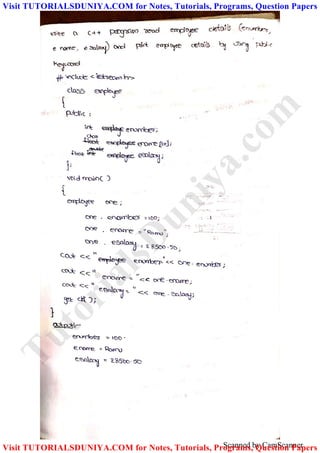 Visit TUTORIALSDUNIYA.COM for Notes, Tutorials, Programs, Question Papers
write a c++ program read employee details (enumber,
e name, esalary) and print employee details by using public
keyword
# include <iostream.h>
class employee
{
public:
int enumber;
char ename[10];
float esalary;
};
void main( )
{
employee one;
one . enumber = 100;
one . ename = "Ramu";
one . esalary = 28500.50;
cout << "enumber" << one . enumber;
cout << "ename = " << one . ename;
cout << "esalary = " << one . salary;
get ch( );
}
output:-
enumber = 100.
ename = Ramu
esalary = 28500.50
TutorialsDuniya.com
Scanned by CamScanner
Visit TUTORIALSDUNIYA.COM for Notes, Tutorials, Programs, Question Papers